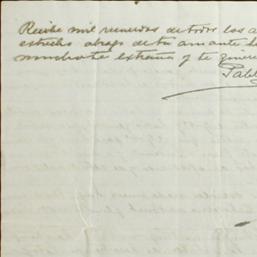 Recibe mil recuerdos de todos los a
estrecho abrazo de tu amante h
mucho te extraña y te quiere
Pabl